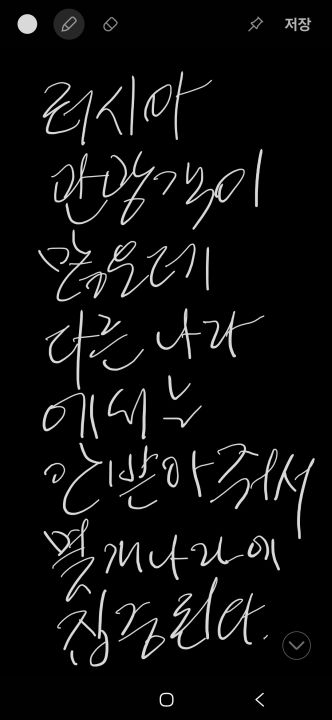 저장
러시아
관광객이
많은데
다른 나라
에서는
안 받아줘서
몇 개 나라에
집중된다.